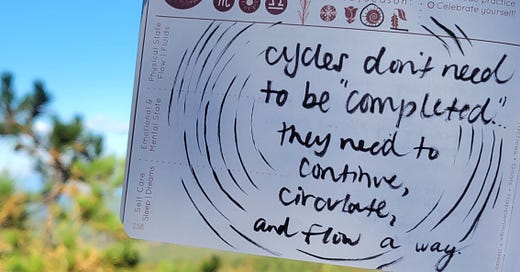 practice
Celebrate yourself!
Physical State
Flow | Fluids
Emotional &
Mental State
Self Care
Sleep | Dreams
258
cycles don't need
to be "completed."
they need to
continue,
circulate,
and flow a way.